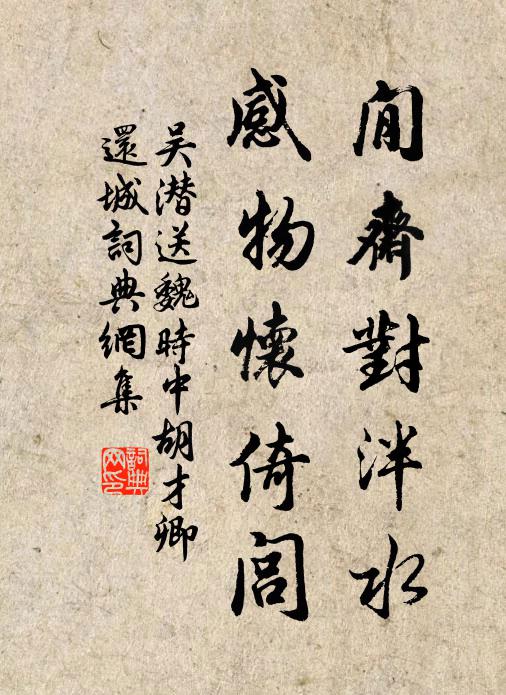 閒齋對泮水
感物懷倚閭
吴潜送魏時中胡才卿
還城詞典網集
詞典网印